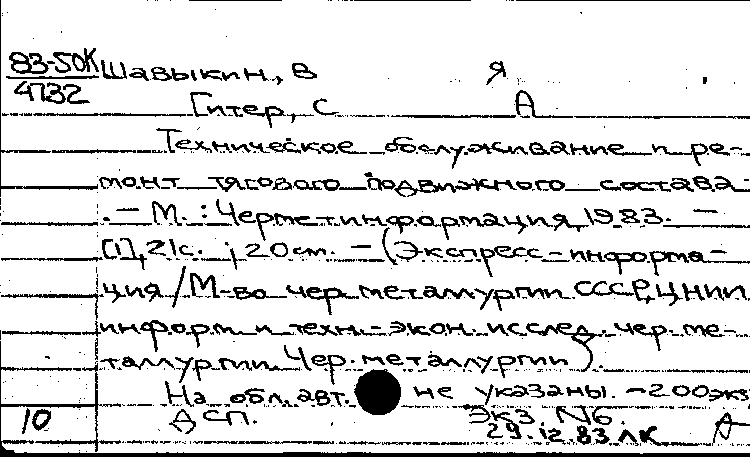 83-50К Шавыкин, В Я
4732
Гитер, С А
Техническое обслуживание и ре-
монт тягового подвижного состава
. — М. : Черметинформация, 1983. —
[1], 21с. ; 20см. — (Экспресс-информа-
ция / М-во чер. металлургии СССР, ЦНИИ
информ. и техн.-экон. исслед. чер. ме-
таллургии. Чер. металлургия).
На обл. авт. не указаны. — 200экз
ДСП. Экз. №6.
10 29.12.83 ЛК А